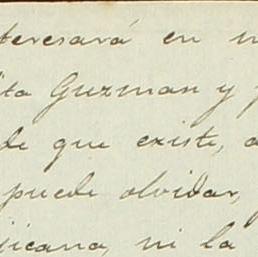 teresará en
ta Guzman y
de que existe, a
puede olvidar,
jicana, ni la